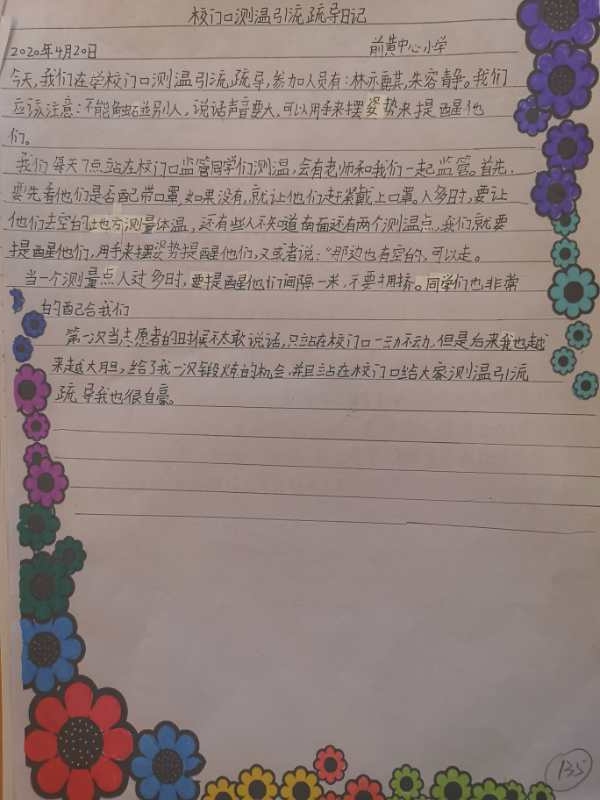 校门口测温引流疏导日记
2020年4月20日 前黄中心小学
今天,我们在学校门口测温引流疏导,参加人员有:林亦 其,朱容青静。我们
应该注意:不能触碰别人,说话声音要大,可以用手来摆姿势来提醒他
们。
我们每天7点站在校门口监管同学们测温,会有老师和我们一起监管。首先,
要先看他们是否配带口罩,如果没有,就让他们赶紧戴上口罩。人多时,要让
他们去空的地方测量体温,还有些人不知道南面还有两个测温点,我们就要
提醒他们,用手来摆姿势提醒他们,又或者说:“那边也有空的,可以走。
当一个测量点人过多时,要提醒他们间隔一米,不要拥挤。同学们也非常
的配合我们
第一次当志愿者的时候不太敢说话,只站在校门口一动不动,但是后来我也越
来越大胆,给了我一次锻炼的机会,并且站在校门口给大家测温引流
疏导我也很自豪。
135